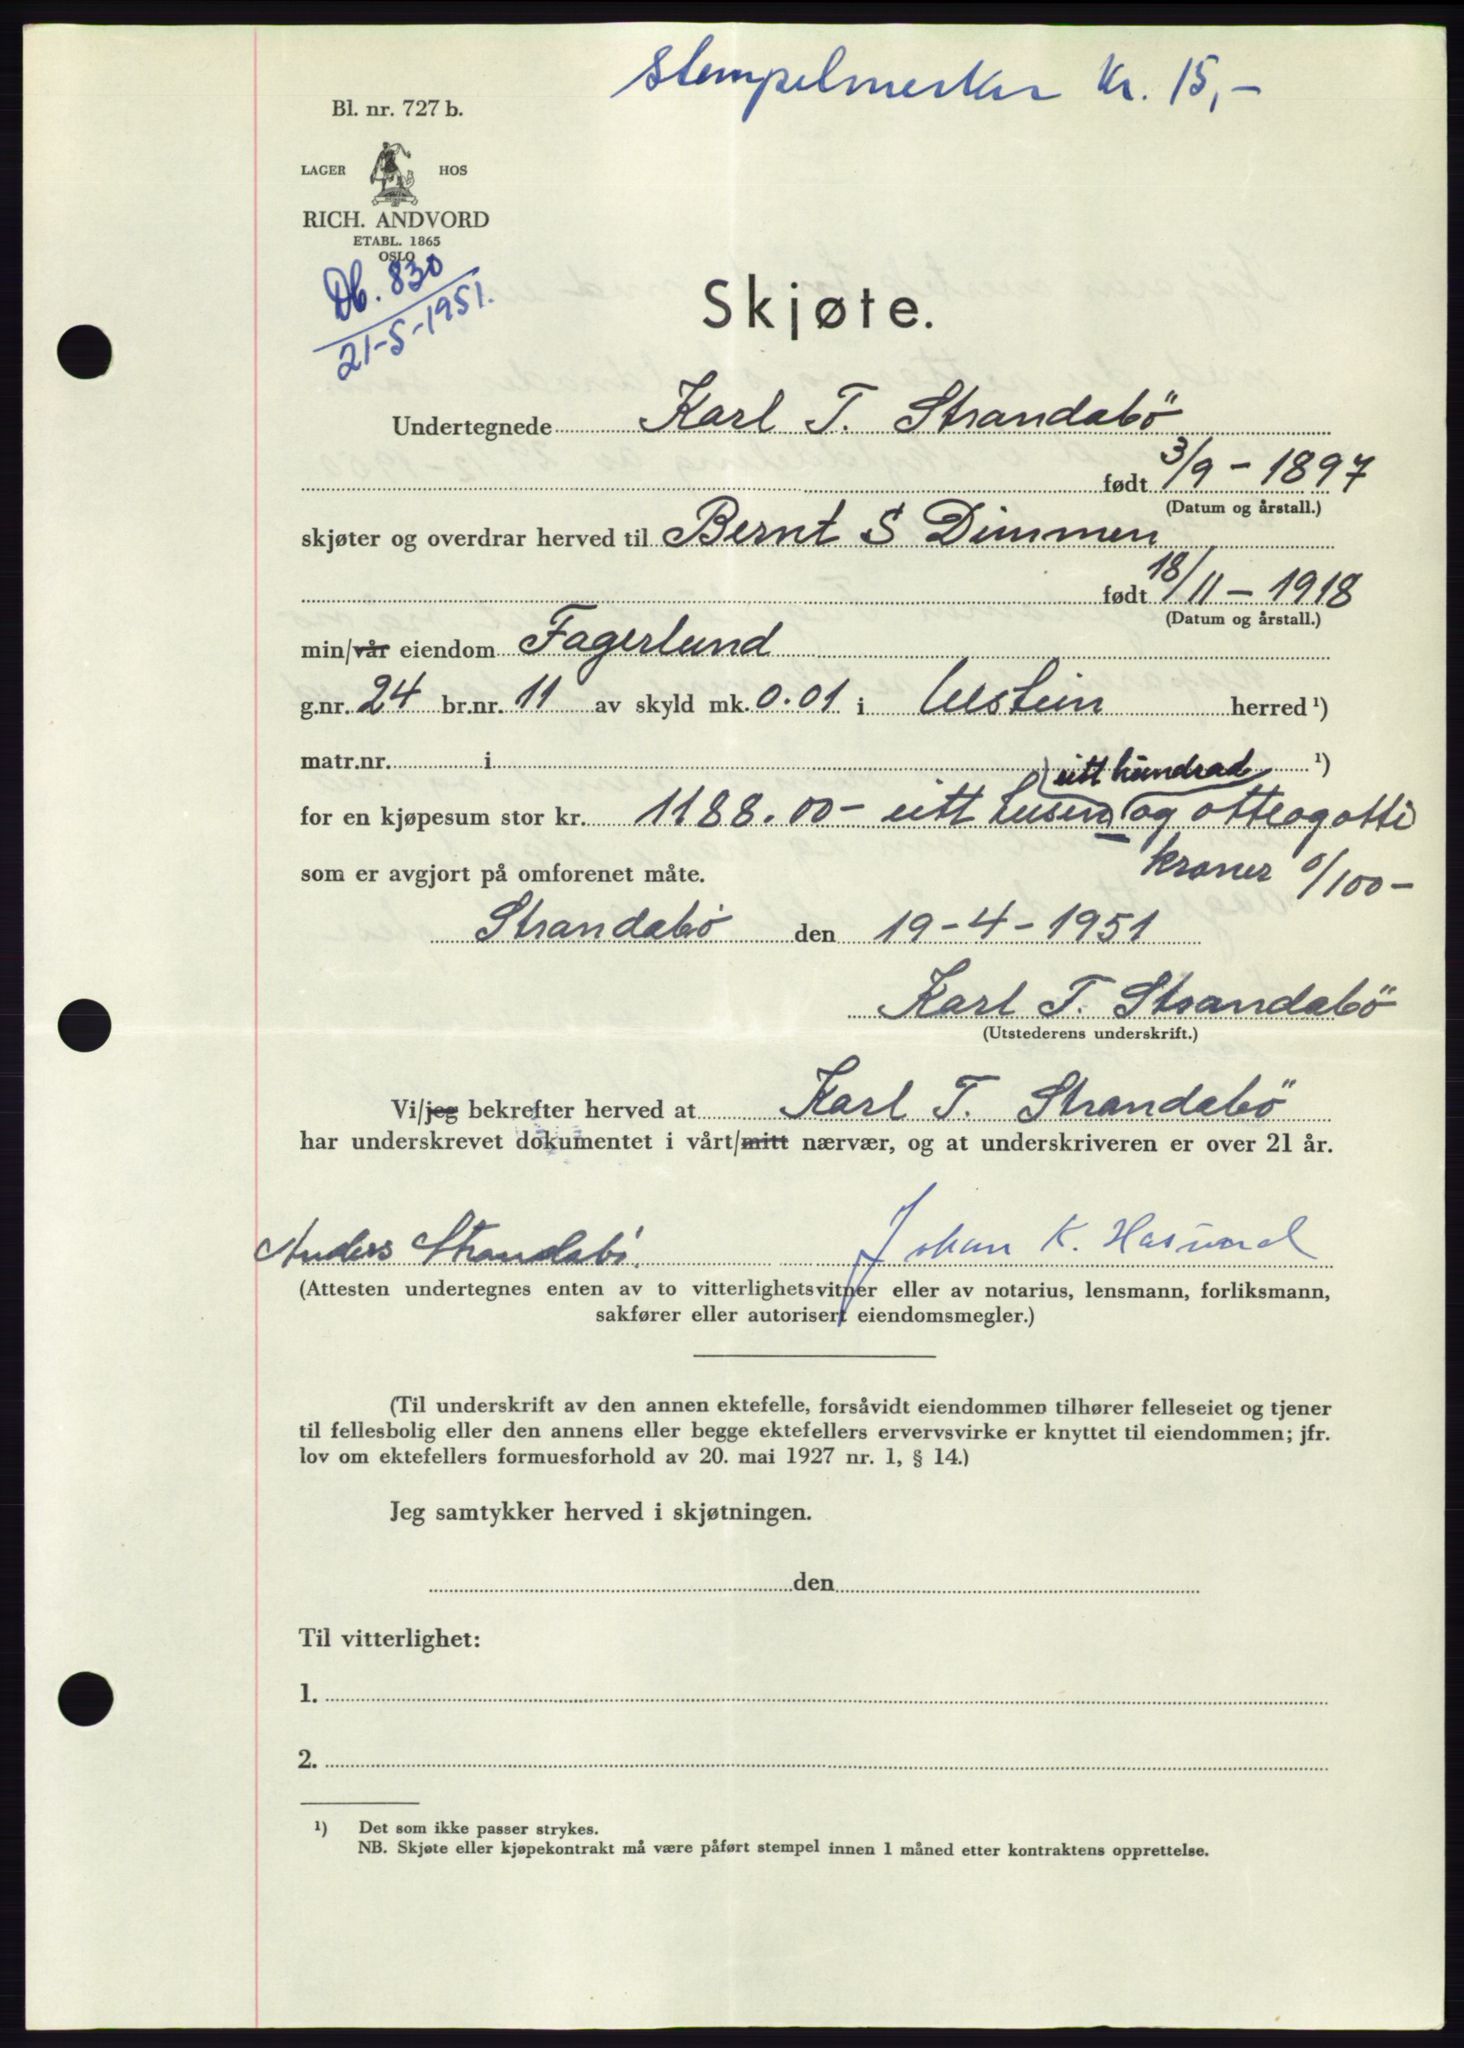 Stempelmerker kr. 15,-
Bl. nr. 727 b.
LAGER HOS
RICH. ANDVORD
ETABL. 1865
OSLO
Db. 830
21-5-1951.
Skjøte.
Undertegnede Karl T. Strandabö
født 3/9 - 1897
(Datum og årstall.)
skjøter og overdrar herved til Bernt S Dimmen
født 18/11 - 1918
(Datum og årstall.)
min/vår eiendom Fagerlund
g.nr. 24 br.nr. 11 av skyld mk. 0.01 i Ulstein herred ¹)
matr.nr. i ¹)
eitt hundrad
for en kjøpesum stor kr. 1188.00- eitt tusend og otteogotti
kroner 0/100-
som er avgjort på omforenet måte.
Strandabö den 19-4-1951
Karl T. Strandabö
(Utstederens underskrift.)
Vi/jeg bekrefter herved at Karl T. Strandabö
har underskrevet dokumentet i vårt/mitt nærvær, og at underskriveren er over 21 år.
Anders Strandabö. Johan K. Hasund
(Attesten undertegnes enten av to vitterlighetsvitner eller av notarius, lensmann, forliksmann,
sakfører eller autorisert eiendomsmegler.)
(Til underskrift av den annen ektefelle, forsåvidt eiendommen tilhører felleseiet og tjener
til fellesbolig eller den annens eller begge ektefellers ervervsvirke er knyttet til eiendommen; jfr.
lov om ektefellers formuesforhold av 20. mai 1927 nr. 1, § 14.)
Jeg samtykker herved i skjøtningen.
den
Til vitterlighet:
1.
2.
¹) Det som ikke passer strykes.
NB. Skjøte eller kjøpekontrakt må være påført stempel innen 1 måned etter kontraktens opprettelse.